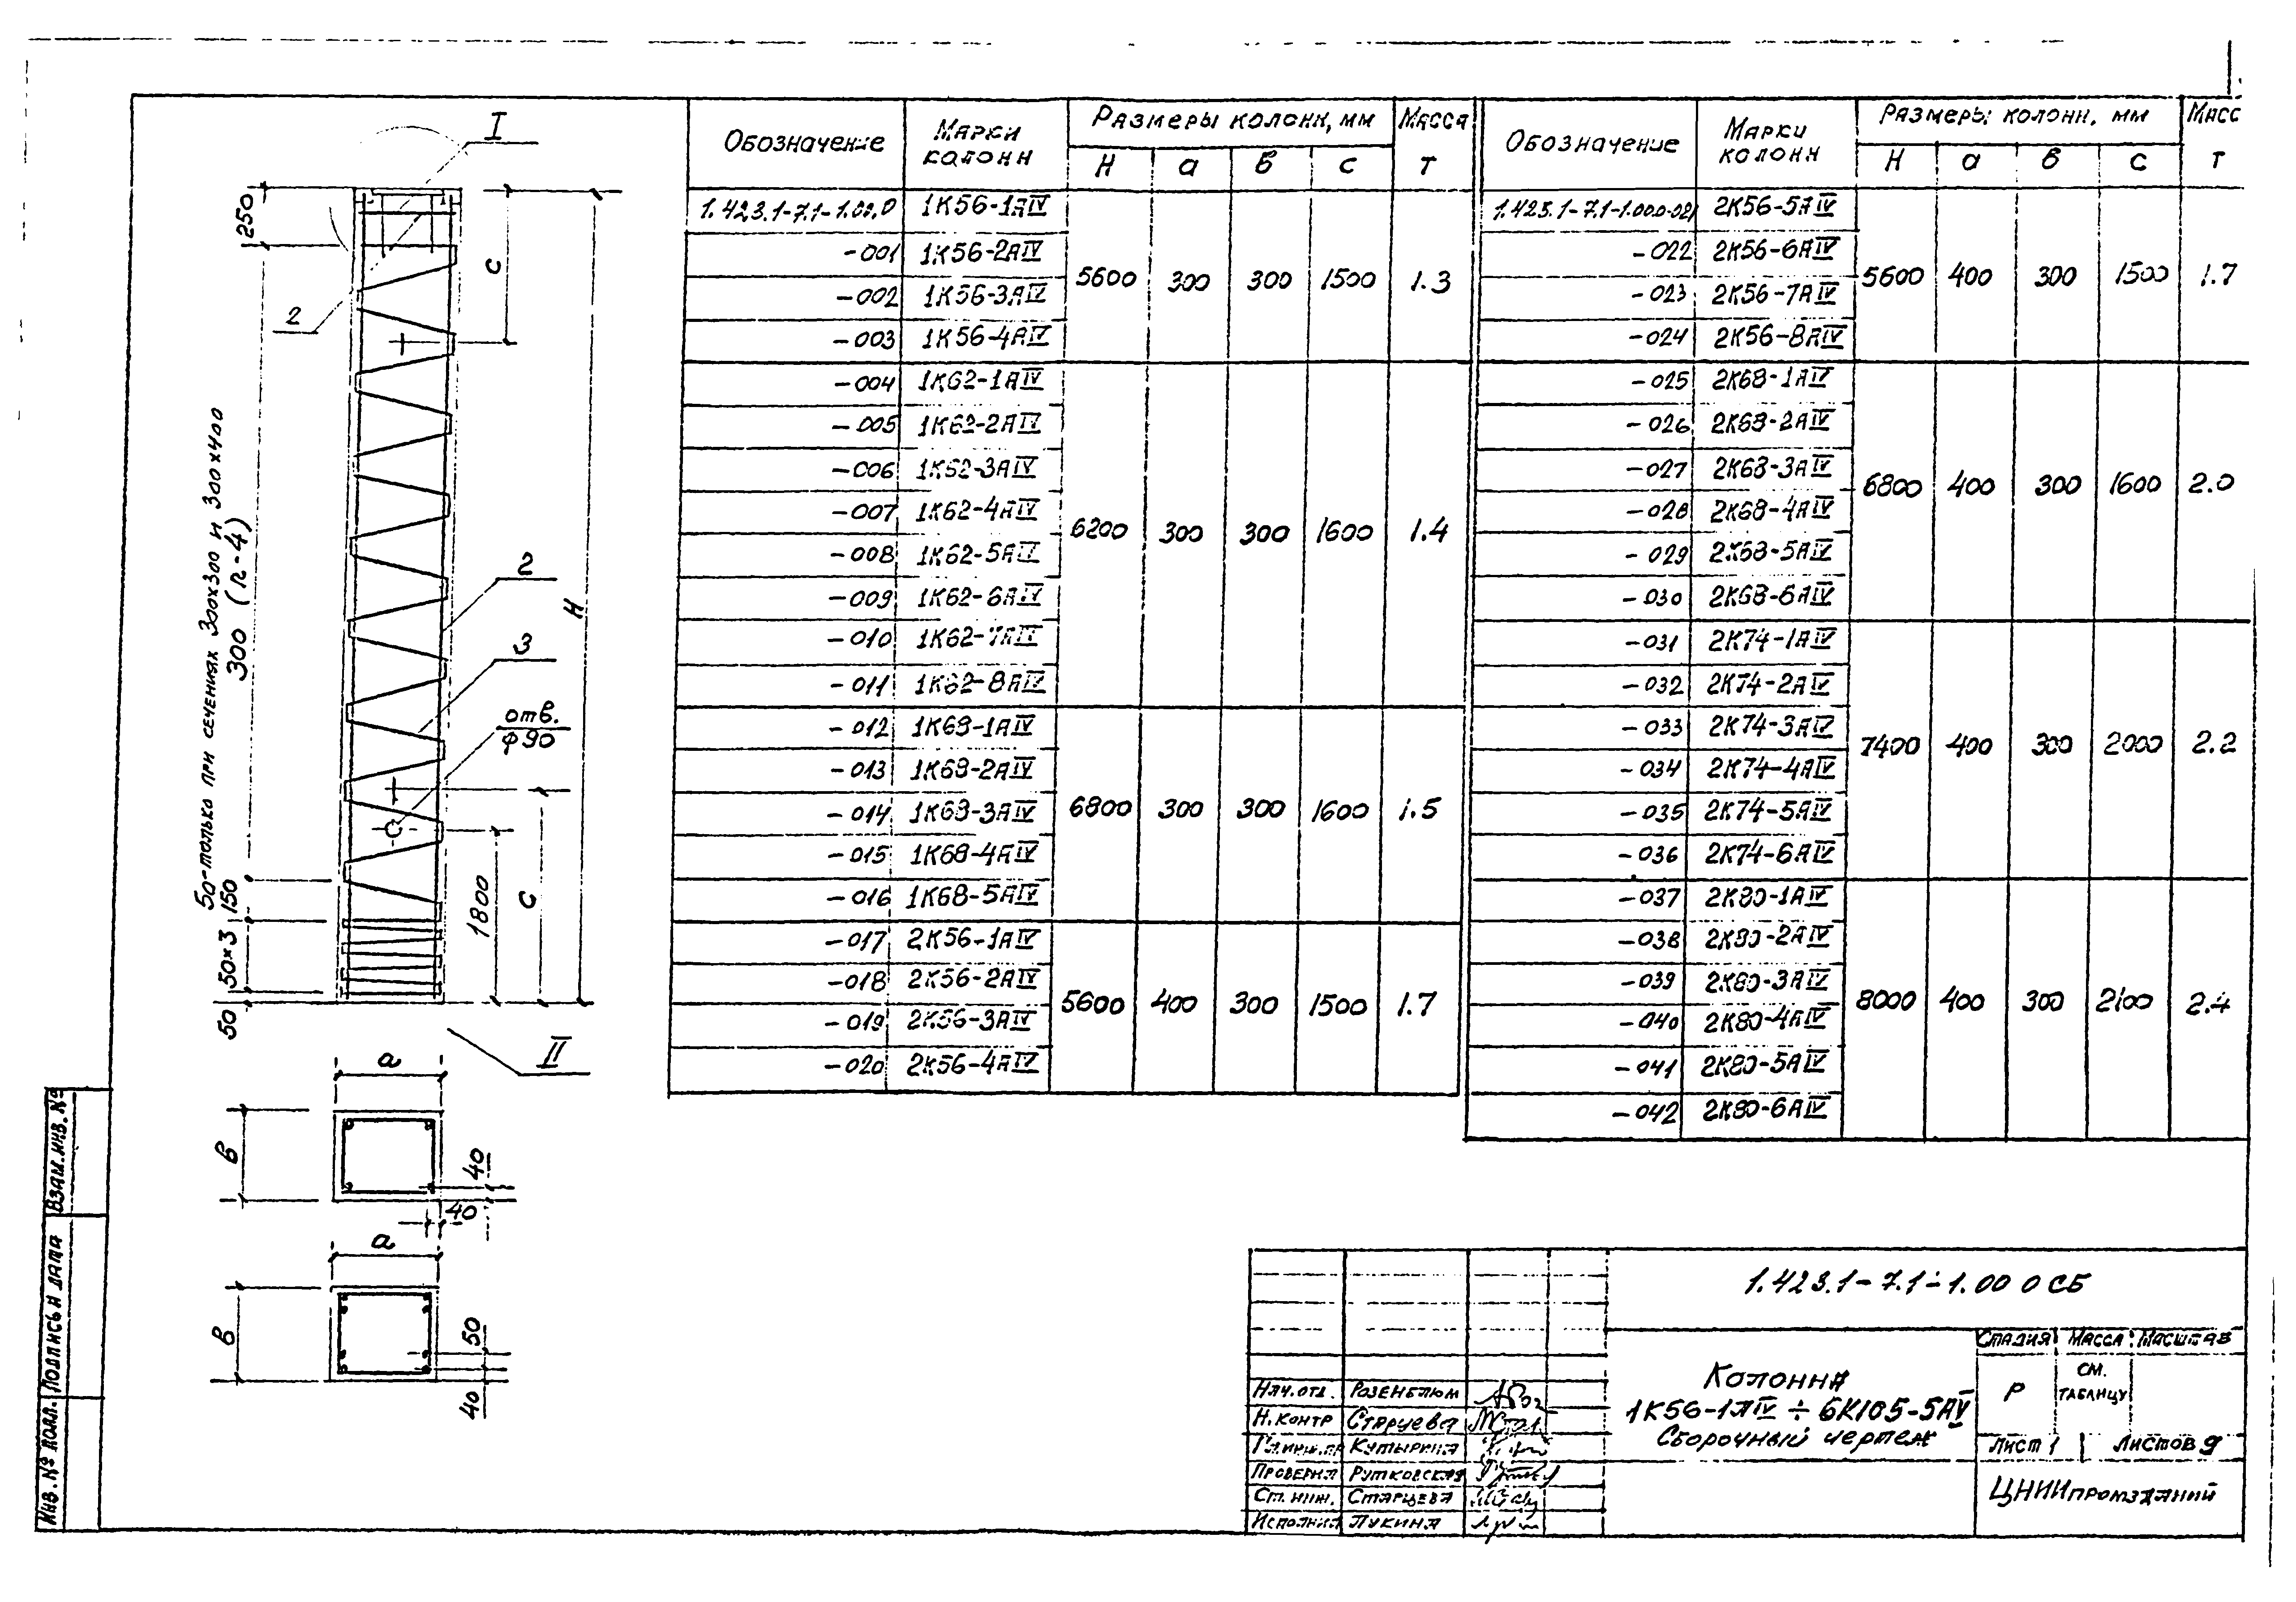 I
2
250
c
H
50-только при сечениях 300х300 и 300х400
300 (n-4)
2
3
отв.
ф90
150
50×3
50
1800
c
II
а
в
40
40
а
в
50
40
Обозначение Марки колонн Размеры колонн, мм Масса т
Н а в с
1.423.1-7.1-1.00.0 1К56-1АIV
-001 1К56-2АIV
-002 1К56-3АIV
-003 1К56-4АIV
5600 300 300 1500 1.3
-004 1К62-1АIV
-005 1К62-2АIV
-006 1К62-3АIV
-007 1К62-4АIV
-008 1К62-5АIV
-009 1К62-6АIV
-010 1К62-7АIV
-011 1К62-8АIV
6200 300 300 1600 1.4
-012 1К68-1АIV
-013 1К68-2АIV
-014 1К68-3АIV
-015 1К68-4АIV
-016 1К68-5АIV
6800 300 300 1600 1.5
-017 2К56-1АIV
-018 2К56-2АIV
-019 2К56-3АIV
-020 2К56-4АIV
5600 400 300 1500 1.7
Обозначение Марки колонн Размеры колонн, мм Масс т
Н а в с
2К56-5АIV
-022 2К56-6АIV
-023 2К56-7АIV
-024 2К56-8АIV
5600 400 300 1500 1.7
-025 2К68-1АIV
-026 2К68-2АIV
-027 2К68-3АIV
-028 2К68-4АIV
-029 2К68-5АIV
-030 2К68-6АIV
6800 400 300 1600 2.0
-031 2К74-1АIV
-032 2К74-2АIV
-033 2К74-3АIV
-034 2К74-4АIV
-035 2К74-5АIV
-036 2К74-6АIV
7400 400 300 2000 2.2
-037 2К80-1АIV
-038 2К80-2АIV
-039 2К80-3АIV
-040 2К80-4АIV
-041 2К80-5АIV
-042 2К80-6АIV
8000 400 300 2100 2.4
Взам.инв.№
Подпись и дата
Инв.№ подл.
1.423.1-7.1-1.00 0 СБ
Нач.отд. Розенблюм
Н.контр Старцева
Гл.инж.пр Кутырина
Проверил Рутковская
Ст.инж. Старцева
Исполнил Лукина
Колонна
1К56-1АIV ÷ 6К105-5АV
Сборочный чертеж
Стадия Масса Масштаб
Р см. таблицу
Лист 1 Листов 9
ЦНИИпромзданий